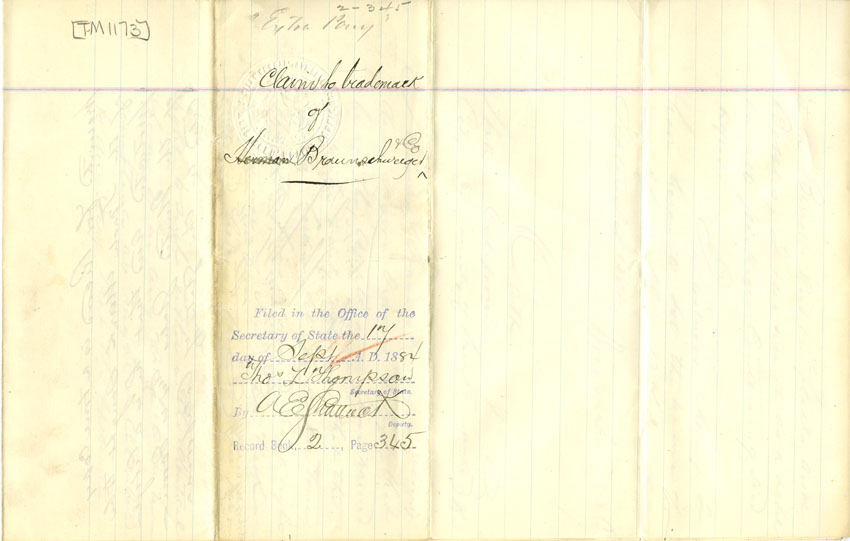 [TM1173]
2-345
"Extra Pony"
Claim to trademark
of
Herman Braunschweiger & Co
Filed in the Office of the
Secretary of State the 17
day of Sept A. D. 1884
Thos L Thompson
Secretary of State.
By A E
Deputy.
Record Book, 2, Page 345